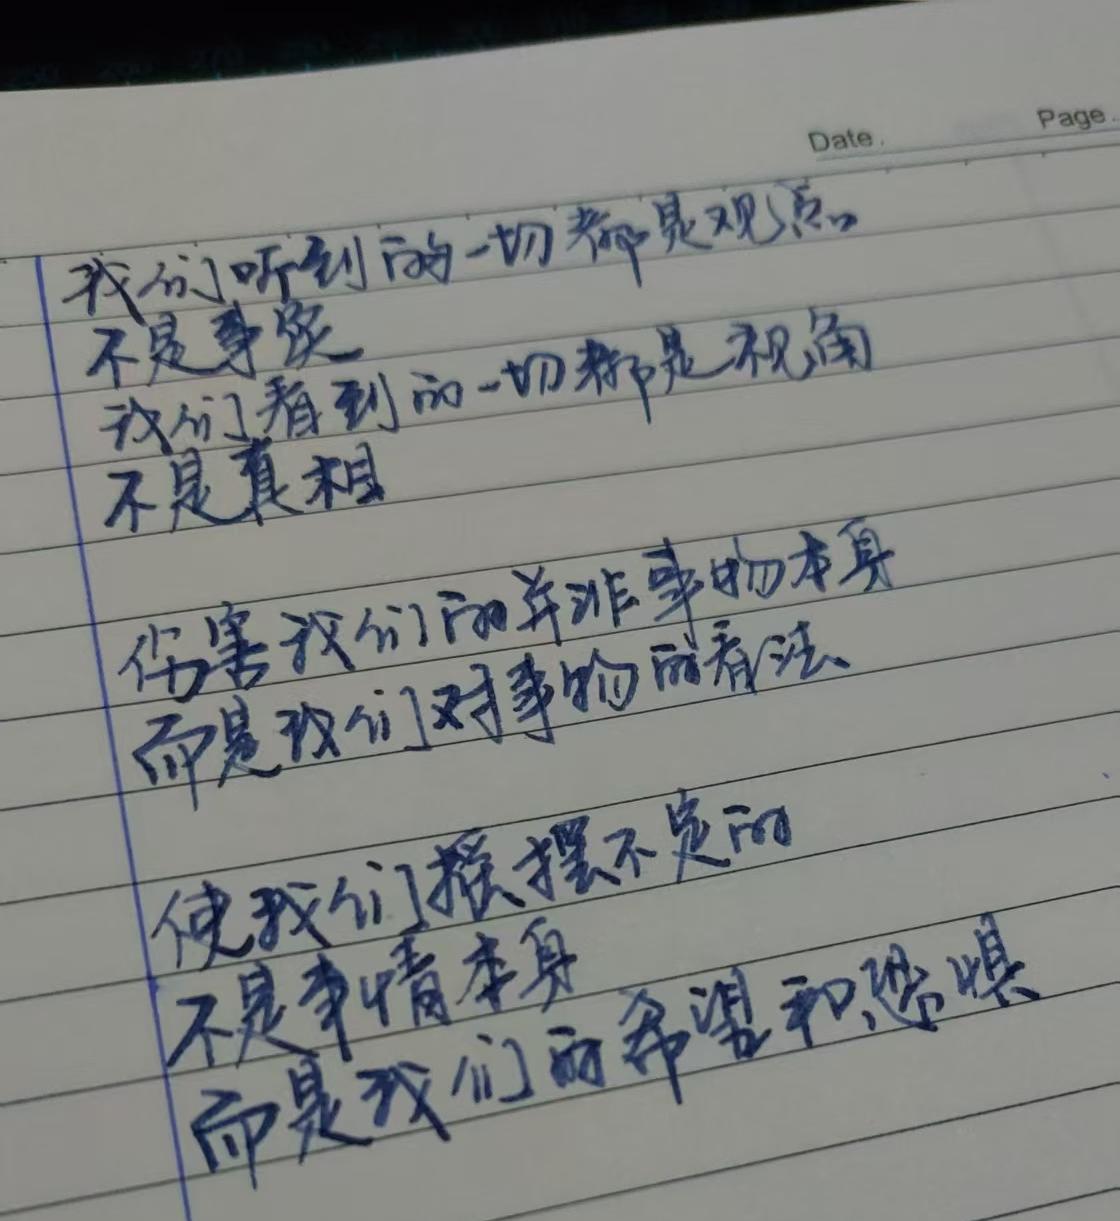 Date.
Page.
我们听到的一切都是观点
不是事实
我们看到的一切都是视角
不是真相
伤害我们的并非事物本身
而是我们对事物的看法
使我们摇摆不定的
不是事情本身
而是我们的希望和恐惧